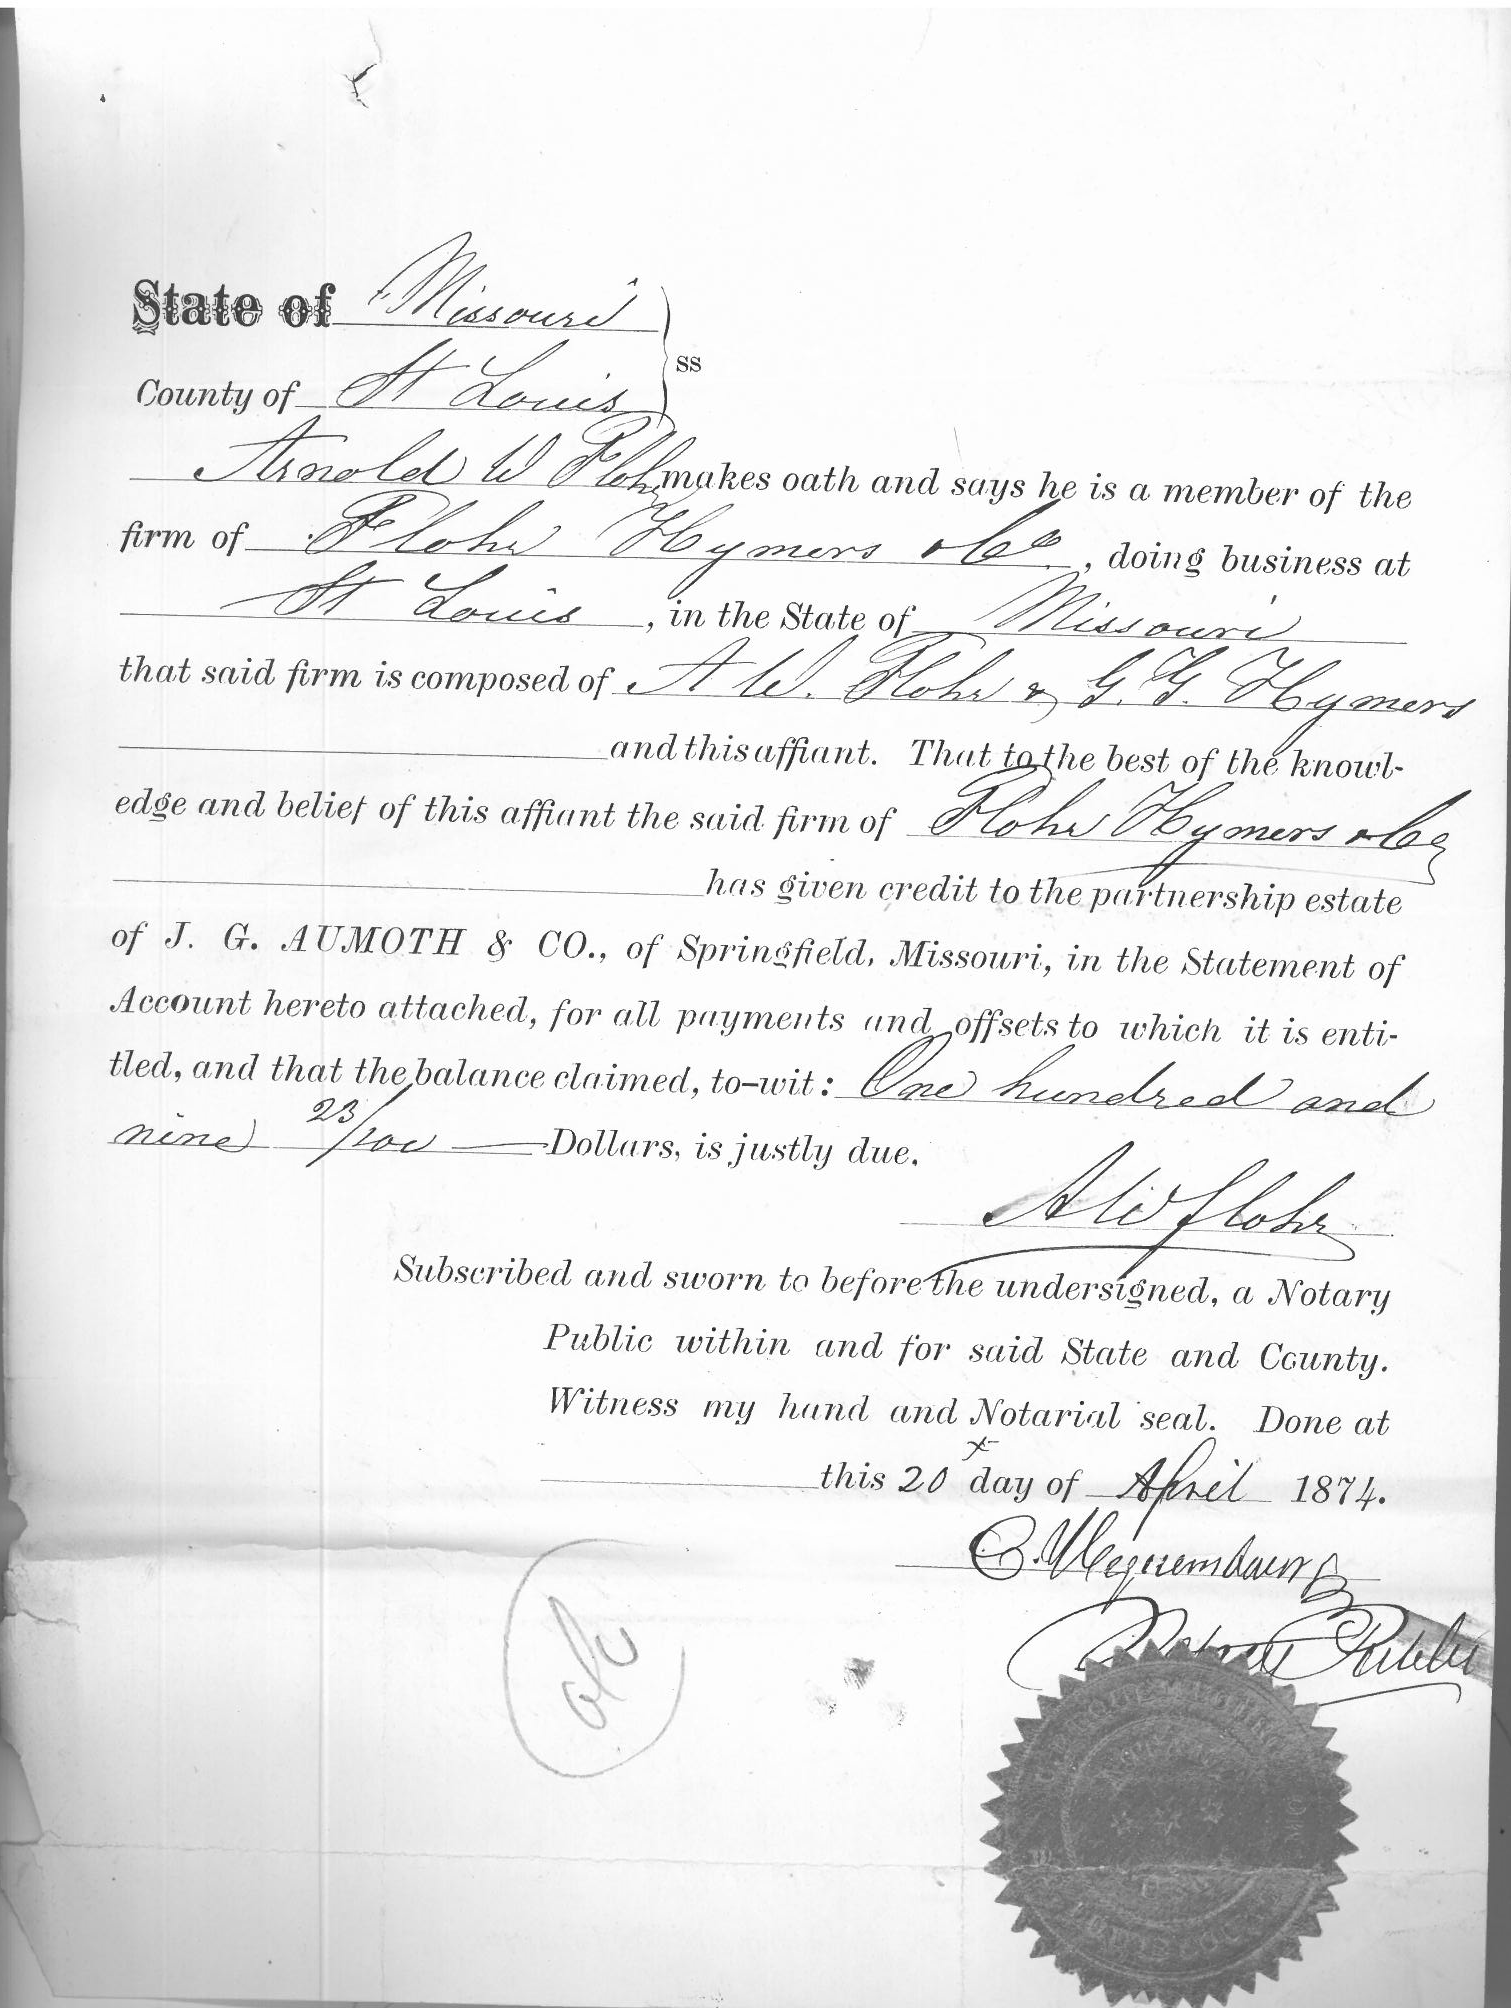 State of Missouri
ss
County of St Louis
Arnold W Flohr makes oath and says he is a member of the
firm of Flohr Hymers & Co, doing business at
St Louis, in the State of Missouri
that said firm is composed of A W. Flohr & G. G. Hymers
and this affiant. That to the best of the knowl-
edge and belief of this affiant the said firm of Flohr Hymers & Co
has given credit to the partnership estate
of J. G. AUMOTH & CO., of Springfield, Missouri, in the Statement of
Account hereto attached, for all payments and offsets to which it is enti-
tled, and that the balance claimed, to-wit: One hundred and
nine 23/100 Dollars, is justly due.
A W Flohr
Subscribed and sworn to before the undersigned, a Notary
Public within and for said State and County.
Witness my hand and Notarial seal. Done at
this 20 day of April 1874.
Notary Public